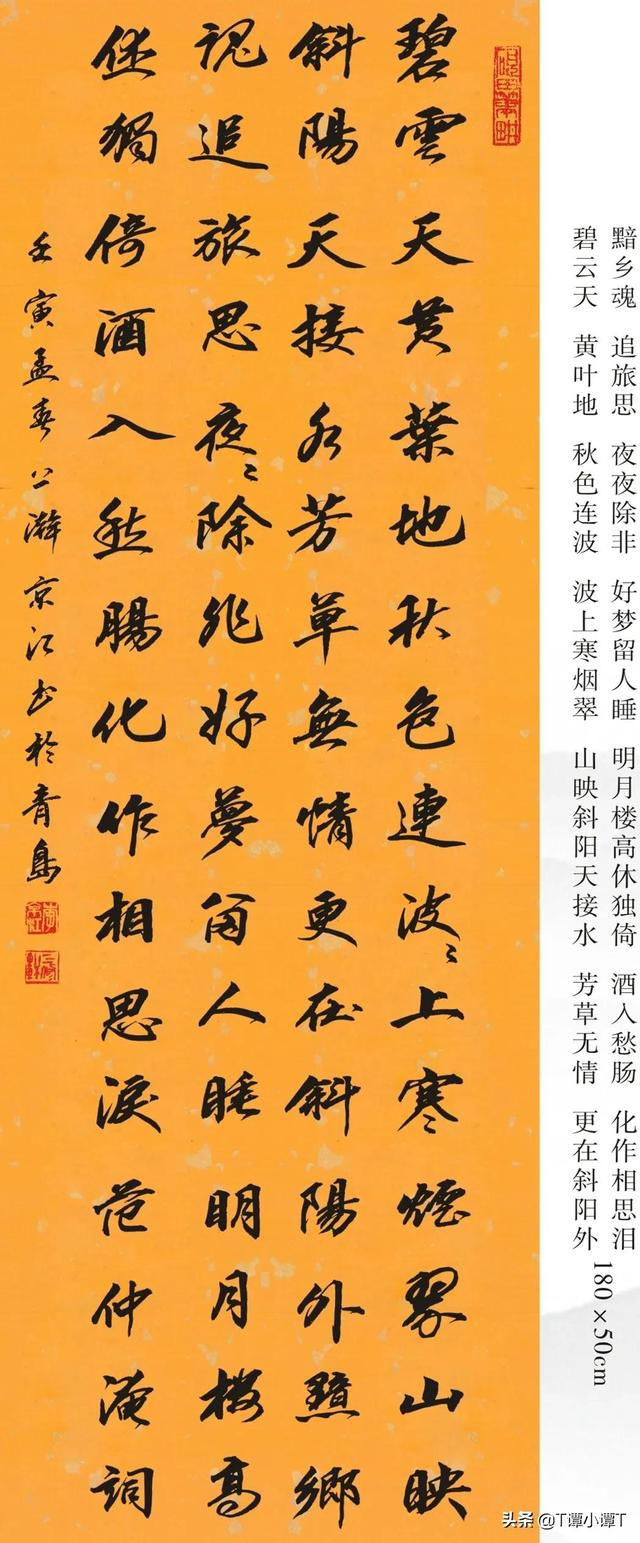 碧雲天黄葉地秋色連波々上寒煙翠山映
斜陽天接水芳草無情更在斜陽外黯鄉
魂追旅思夜々除非好夢留人睡明月樓高
休獨倚酒入愁腸化作相思淚范仲淹詞
壬寅孟春上澣京江书於青島
碧云天 黄叶地 秋色连波 波上寒烟翠 山映斜阳天接水 芳草无情 更在斜阳外
黯乡魂 追旅思 夜夜除非 好梦留人睡 明月楼高休独倚 酒入愁肠 化作相思泪
180×50cm
头条 @T谭小谭T